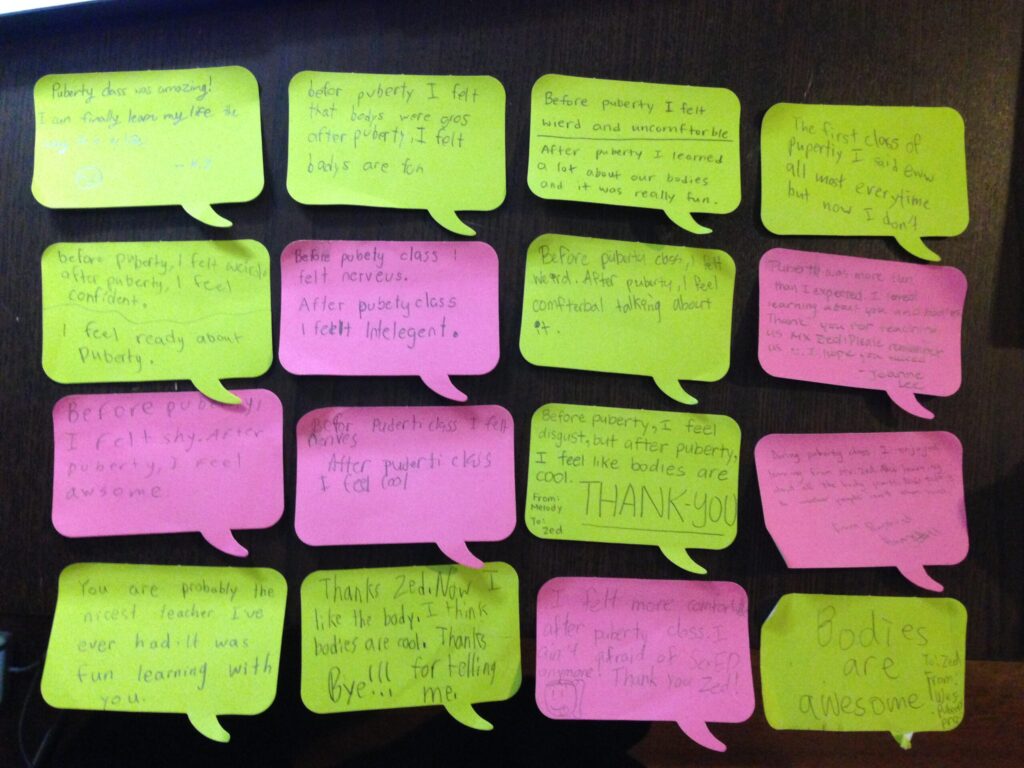 Puberty class was amazing!
I can finally learn my life the
befor puberty I felt
that bodys were gros
after puberty, I felt
bodys are fun
Before puberty I felt
wierd and uncomftorble
After puberty I learned
a lot about our bodies
and it was really fun.
The first class of
pupertiy I said eww
all most everytime
but now I don't
before puberty, I felt
after puberty, I feel
confident.
I feel ready about
Puberty.
Before pubety class I
felt nerveus.
After pubety class
I feelt Intelegent.
Before puberty class, I felt
weird. After puberty, I feel
comfterbal talking about
it.
was more fun
than I expected. I loved
learning about you and bodies
Thank you for teaching
us Mx Zed! Please remember
us I hope you
- Joanne
Lee
Before puberty,
I felt shy. After
puberty, I feel
awsome.
Befor puderti class I felt
nerves
After puderti class
I feel cool
Before puberty, I feel
disgust, but after puberty,
I feel like bodies are
cool.
From:
Melody
To:
Zed
THANK-YOU
During puberty class I enjoyed
learning from Mx. Zed
all the body parts
people
From
You are probably the
nicest teacher I've
ever had. It was
fun learning with
you.
Thanks Zed. Now I
like the body. I think
bodies are cool. Thanks
Bye!!! for telling
me.
I felt more
after puberty class. I
ain't afraid of SexED
anymore! Thank you Zed!
Bodies
are
awesome
To: Zed
From: